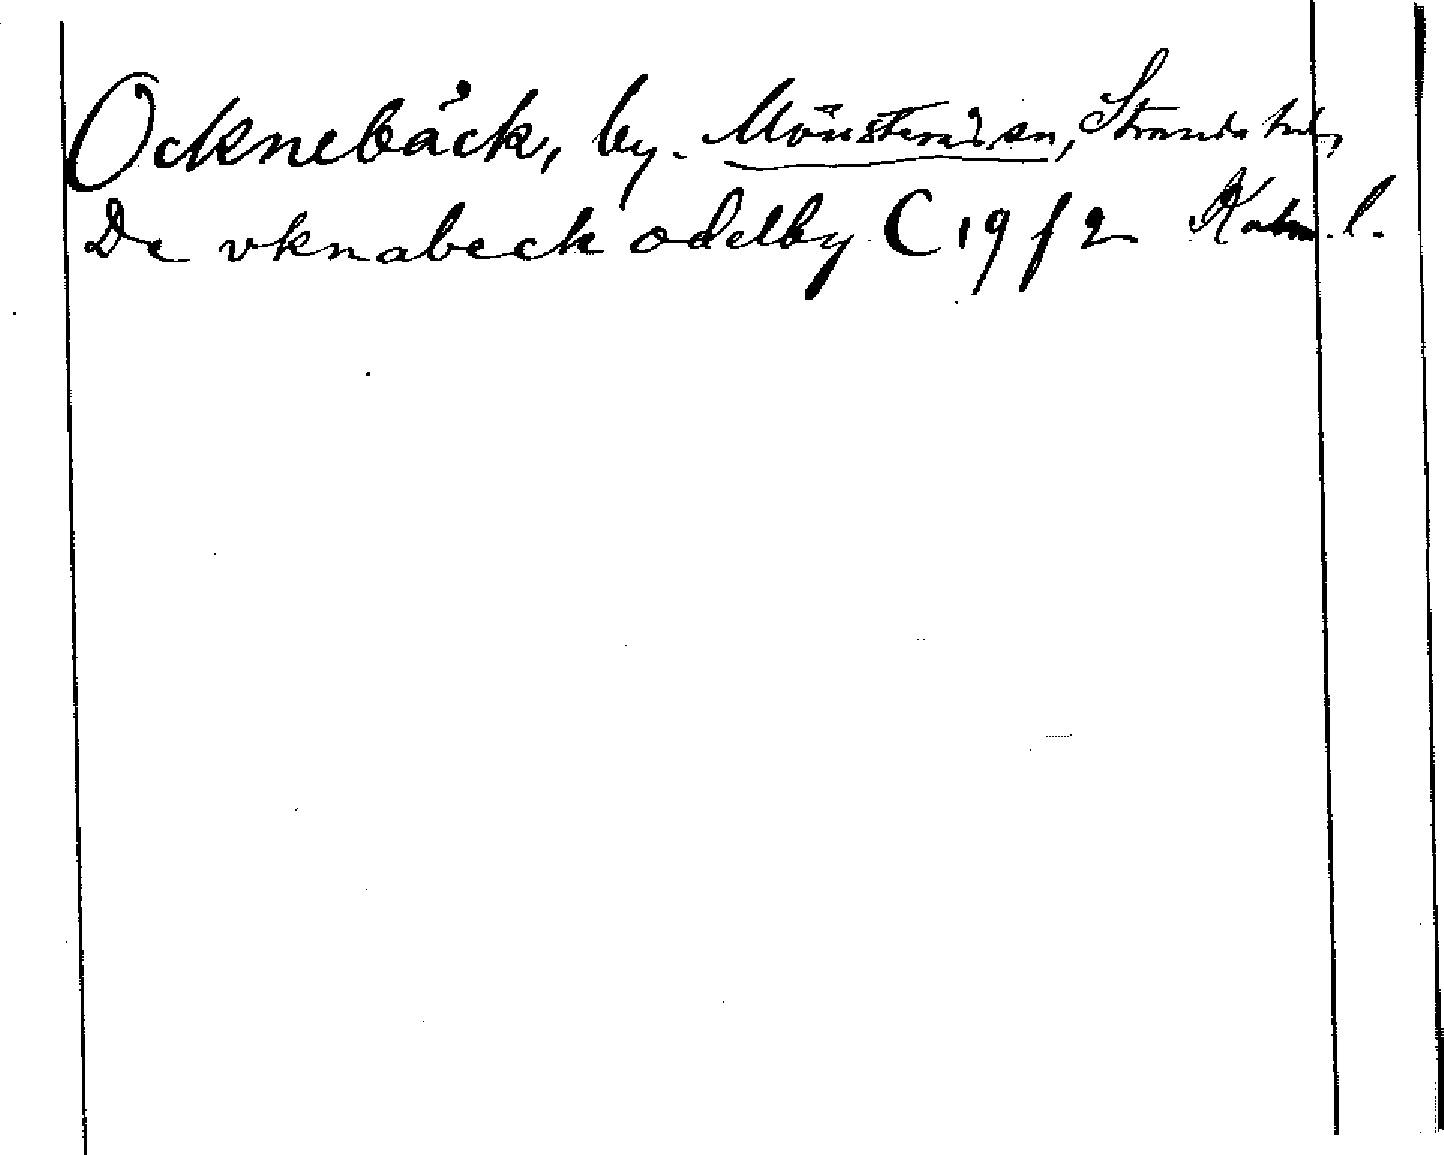 Ocknebäck, by. Mönsterås sn, Stranda hd,
De vknabeck odelby C 19 f 2 Kalm. l.